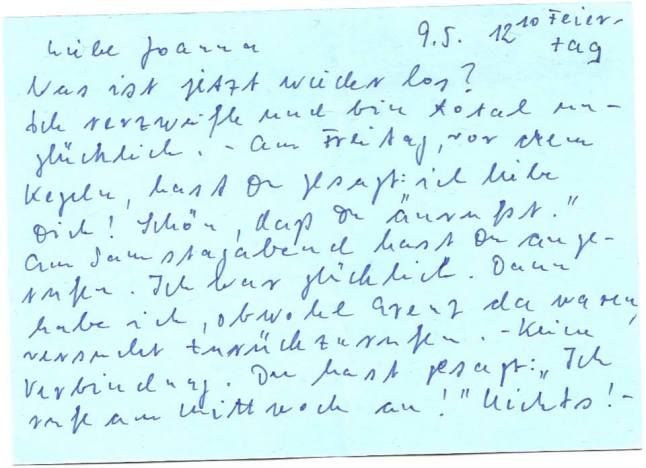 Liebe Joanna 9.5. 12¹⁰ Feier-
tag
Was ist jetzt wieder los?
Ich verzweifle und bin total un-
glücklich. - Am Freitag, vor dem
Kegeln, hast Du gesagt: ich liebe
Dich! Schön, daß Du anrufst."
Am Samstagabend hast Du ange-
rufen. Ich war glücklich. Dann
habe ich, obwohl da waren,
versucht zurückzurufen. - Keine
Verbindung. Du hast gesagt: „Ich
rufe am Mittwoch an!" Nichts! -